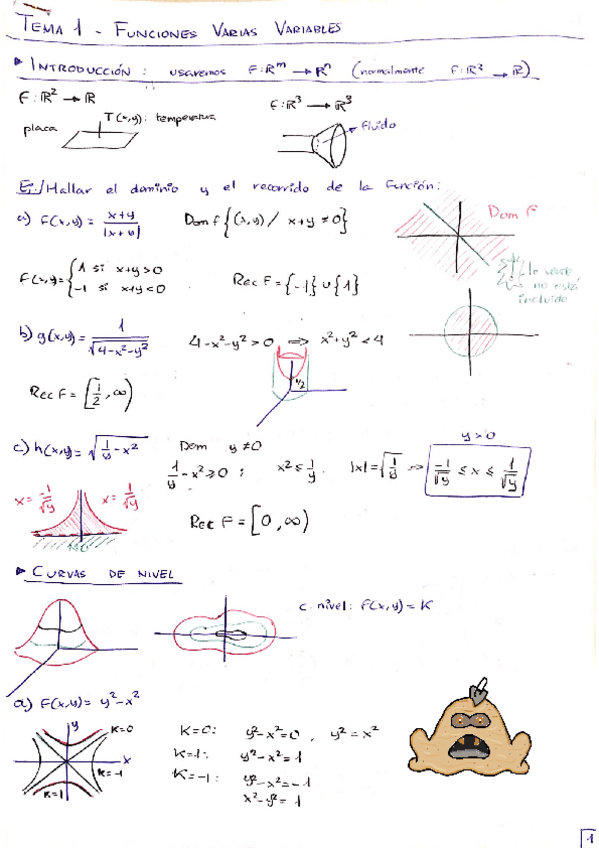 TEMA 1 - FUNCIONES VARIAS VARIABLES
▸ INTRODUCCIÓN: usaremos F: ℝᵐ → ℝⁿ (normalmente F: ℝ² → ℝ)
F: ℝ² → ℝ
F: ℝ³ → ℝ³
placa
T(x,y): temperatura
Fluido
Ej:/ Hallar el dominio y el recorrido de la función:
a) F(x,y) = x+y / |x+y|
Dom f {(x,y) / x+y ≠ 0}
Dom f
F(x,y) = { 1 si x+y>0
-1 si x+y<0
Rec F = {-1} ∪ {1}
lo verde
no está
incluido
b) g(x,y) = 1 / √(4-x²-y²)
4-x²-y² > 0 ⇒ x²+y² < 4
1/2
Rec F = [1/2, ∞)
c) h(x,y) = √(1/y - x²)
Dom y≠0
y>0
1/y - x² ≥ 0 ; x² ≤ 1/y . |x| = √(1/y) ⇒ -1/√y ≤ x ≤ 1/√y
x = -1/√y
x = 1/√y
Rec F = [0, ∞)
▸ CURVAS DE NIVEL
c. nivel: F(x,y) = K
a) F(x,y) = y²-x²
y
K=0
x
K=-1
K=1
K=0: y²-x²=0 , y²=x²
K=1: y²-x²=1
K=-1: y²-x²=-1
x²-y²=1
1